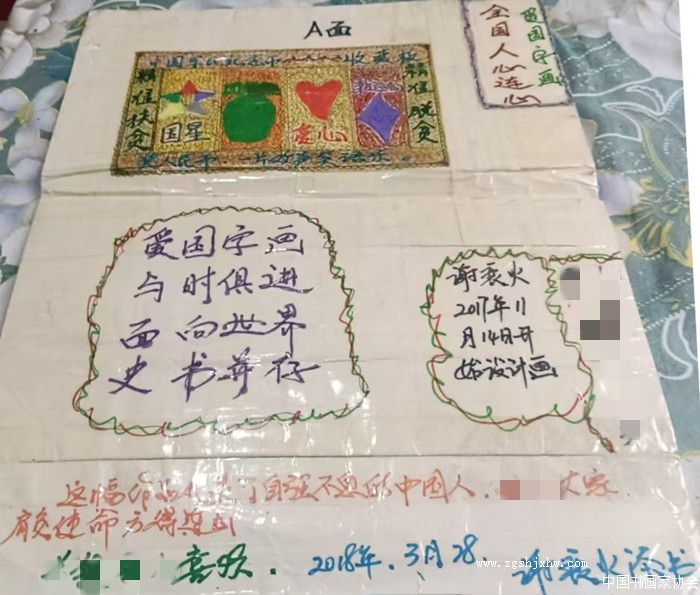 A面
爱国字画
全国人心连心
收藏
精准扶贫
国星
爱心
精准脱贫
爱国字画
与时俱进
面向世界
史书并存
谢袁火
2017年11
月14日开
始设计画
这幅作品 自强不息的中国人, 大家
肩负使命方得
喜欢 2018年.3月28. 谢袁火
www.zgshjxhw.com
中国书画家协会